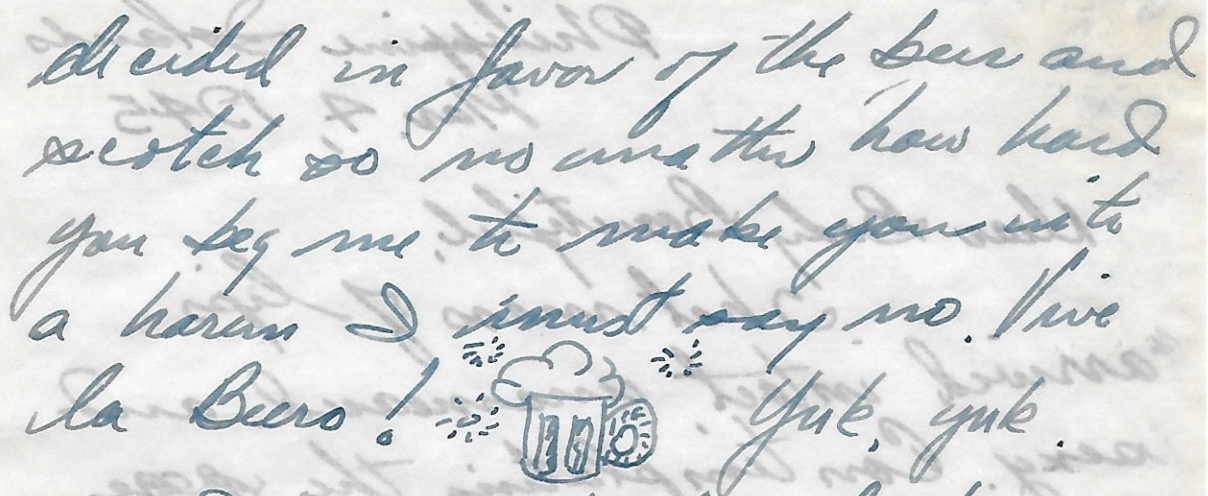 decided in favor of the beer and
scotch so no matter how hard
you beg me to make you into
a harem I must say no. Vive
la Beero! Yuk, yuk.